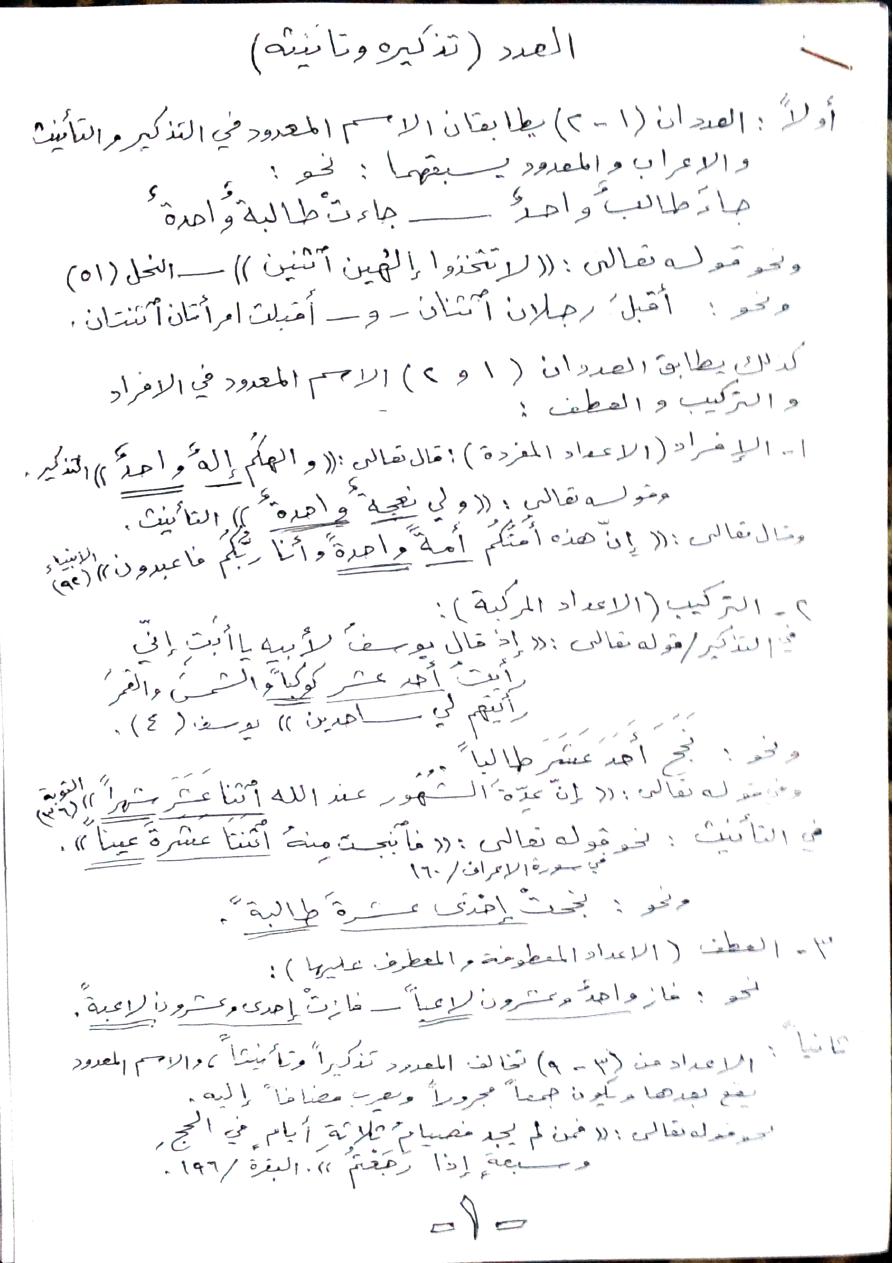 العدد (تذكيره وتأنيثه)
أولاً : العددان (١ - ٢) يطابقان الاسم المعدود في التذكير والتأنيث
والاعراب والمعدود يسبقهما : نحو :
جاءَ طالبٌ واحدٌ — جاءتْ طالبةٌ واحدةٌ
ونحو قوله تعالى : ((لا تتخذوا إلهين اثنين)) — النحل (٥١)
ونحو : أقبلَ رجلان اثنان - و - أقبلت امرأتان اثنتان .
كذلك يطابق العددان (١ و ٢) الاسم المعدود في الافراد
والتركيب والعطف :
١- الإفراد (الاعداد المفردة) : قال تعالى : ((والهكُم إلهٌ واحدٌ)) التذكير .
وقوله تعالى : ((ولي نعجةٌ واحدةٌ)) التأنيث .
وقال تعالى : ((إنّ هذه أُمتُكُم أمةً واحدةً وأنا ربُّكُم فاعبدون)) الأنبياء (٩٢)
٢- التركيب (الاعداد المركبة) :
في التذكير / قوله تعالى : ((إذ قال يوسفُ لأبيهِ يا أبتِ إنّي
رأيتُ أحد عشر كوكباً والشمسَ والقمرَ
رأيتهم لي ساجدين)) يوسف (٤) .
ونحو : نَجَحَ أَحَدَ عَشَرَ طالباً .
وفي قوله تعالى : ((إنّ عِدّةَ الشُهُور عند الله اثنا عَشَرَ شهراً)) التوبة (٣٦)
في التأنيث : نحو قوله تعالى : ((فانبجست مِنهُ اثنتا عَشْرةَ عيناً)) .
في سورة الاعراف / ١٦٠
ونحو : نجحتْ إحْدَى عشرةَ طالبةً .
٣- العطف (الاعداد المعطوفة والمعطوف عليها) :
نحو : فاز واحدٌ وعشرون لاعباً — فازتْ إحدى وعشرون لاعبةً .
ثانياً : الاعداد من (٣ - ٩) تخالف المعدود تذكيراً وتأنيثاً ، والاسم المعدود
يقع بعدها ويكون جمعاً مجروراً ويعرب مضافاً إليه .
نحو قوله تعالى : ((فمن لم يجد فصيامُ ثلاثةِ أيامٍ في الحجِ
وسبعةٍ إذا رَجَعْتُم)) . البقرة / ١٩٦ .
- ١ -